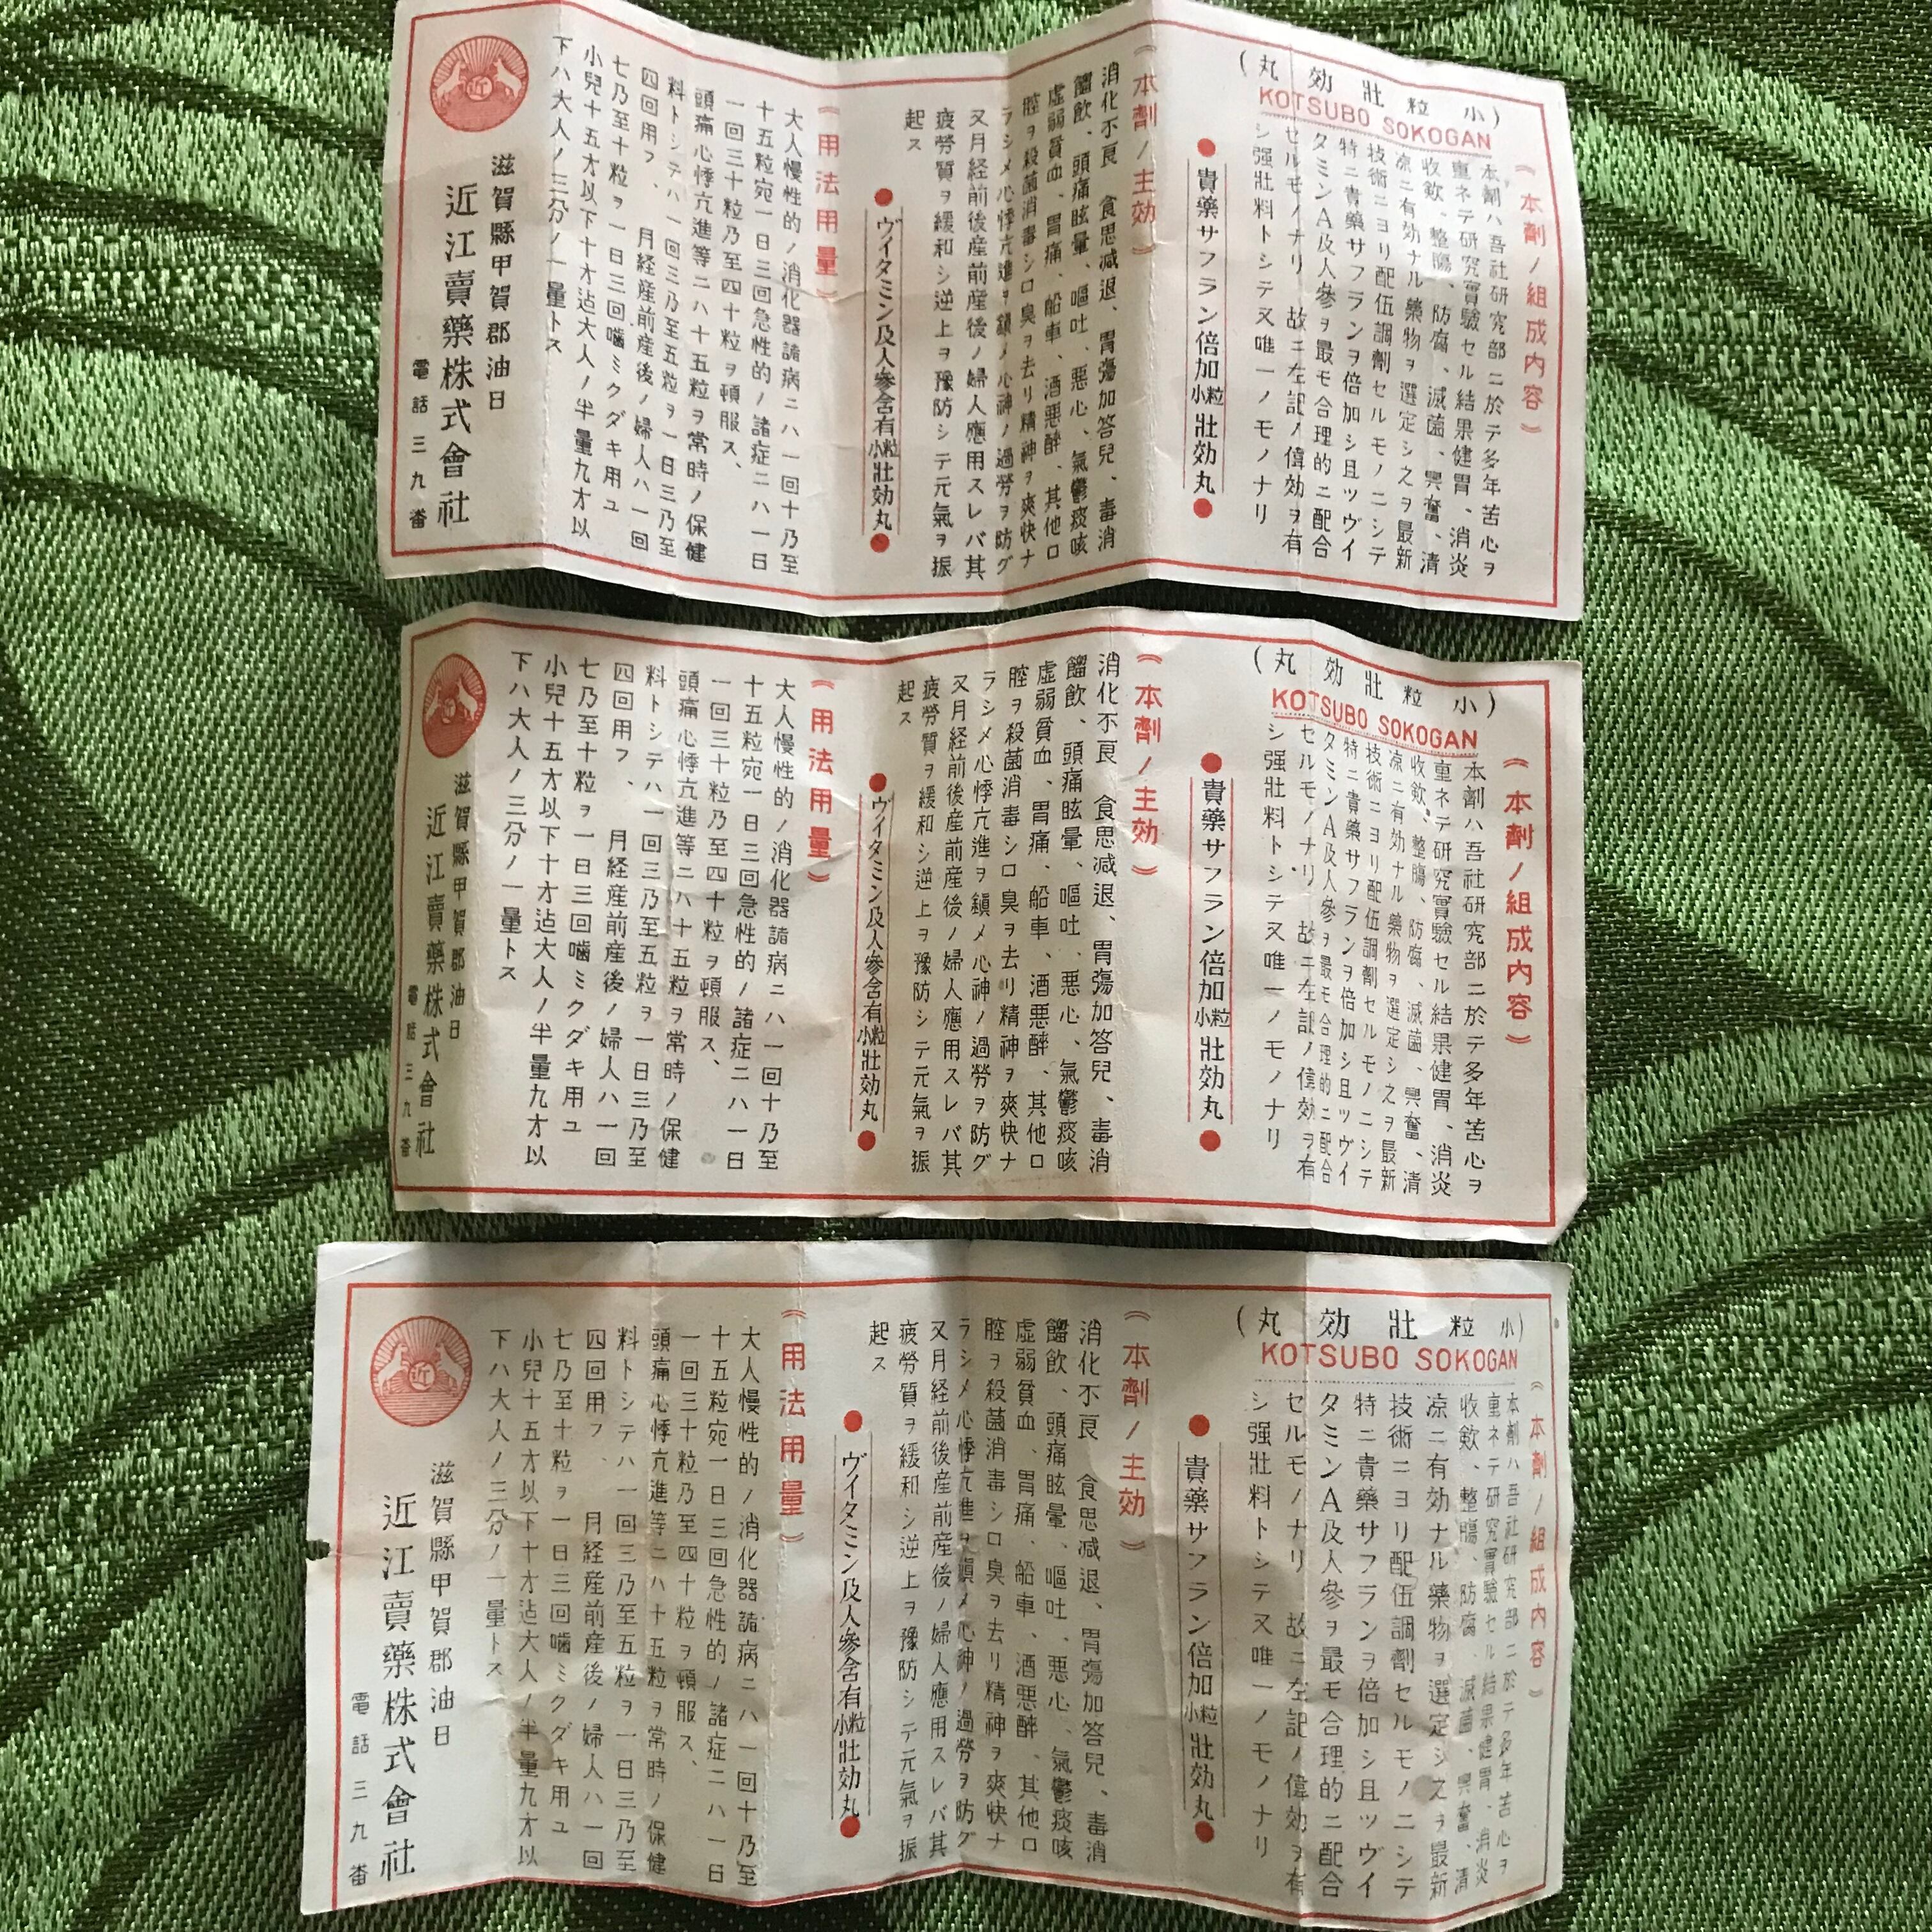 (小粒壯効丸)
KOTSUBO SOKOGAN
《本劑ノ組成内容》
本劑ハ吾社研究部ニ於テ多年苦心ヲ
重ネテ研究實驗セル結果健胃、消炎
收歛、整腸、防腐、滅菌、興奮、清
凉ニ有効ナル藥物ヲ選定シ之ヲ最新
技術ニヨリ配伍調劑セルモノニシテ
特ニ貴藥サフランヲ倍加シ且ツヴイ
タミンA及人參ヲ最モ合理的ニ配合
セルモノナリ 故ニ左記ノ偉効ヲ有
シ强壯料トシテ又唯一ノモノナリ
●貴藥サフラン倍加小粒壯効丸●
《本劑ノ主効》
消化不良 食思減退、胃瘍加答兒、毒消
餾飲、頭痛眩暈、嘔吐、悪心、氣鬱痰咳
虛弱貧血、胃痛、船車、酒悪醉、其他口
腔ヲ殺菌消毒シ口臭ヲ去リ精神ヲ爽快ナ
ラシメ心悸亢進ヲ鎭メ心神ノ過勞ヲ防グ
又月経前後産前産後ノ婦人應用スレバ其
疲勞質ヲ緩和シ逆上ヲ豫防シテ元氣ヲ振
起ス
●ヴイタミン及人參含有小粒壯効丸●
《用法用量》
大人慢性的ノ消化器諸病ニハ一回十乃至
十五粒宛一日三回急性的ノ諸症ニハ一日
一回三十粒乃至四十粒ヲ頓服ス、
頭痛心悸亢進等ニハ十五粒ヲ常時ノ保健
料トシテハ一回三乃至五粒ヲ一日三乃至
四回用フ、 月経産前産後ノ婦人ハ一回
七乃至十粒ヲ一日三回嚙ミクダキ用ユ
小兒十五才以下十才迠大人ノ半量九才以
下ハ大人ノ三分ノ一量トス
近
滋賀縣甲賀郡油日
近江賣藥株式會社
電話三九番
(小粒壯効丸)
KOTSUBO SOKOGAN
《本劑ノ組成内容》
本劑ハ吾社研究部ニ於テ多年苦心ヲ
重ネテ研究實驗セル結果健胃、消炎
收歛、整腸、防腐、滅菌、興奮、清
凉ニ有効ナル藥物ヲ選定シ之ヲ最新
技術ニヨリ配伍調劑セルモノニシテ
特ニ貴藥サフランヲ倍加シ且ツヴイ
タミンA及人參ヲ最モ合理的ニ配合
セルモノナリ 故ニ左記ノ偉効ヲ有
シ强壯料トシテ又唯一ノモノナリ
●貴藥サフラン倍加小粒壯効丸●
《本劑ノ主効》
消化不良 食思減退、胃瘍加答兒、毒消
餾飲、頭痛眩暈、嘔吐、悪心、氣鬱痰咳
虛弱貧血、胃痛、船車、酒悪醉、其他口
腔ヲ殺菌消毒シ口臭ヲ去リ精神ヲ爽快ナ
ラシメ心悸亢進ヲ鎭メ心神ノ過勞ヲ防グ
又月経前後産前産後ノ婦人應用スレバ其
疲勞質ヲ緩和シ逆上ヲ豫防シテ元氣ヲ振
起ス
●ヴイタミン及人參含有小粒壯効丸●
《用法用量》
大人慢性的ノ消化器諸病ニハ一回十乃至
十五粒宛一日三回急性的ノ諸症ニハ一日
一回三十粒乃至四十粒ヲ頓服ス、
頭痛心悸亢進等ニハ十五粒ヲ常時ノ保健
料トシテハ一回三乃至五粒ヲ一日三乃至
四回用フ、 月経産前産後ノ婦人ハ一回
七乃至十粒ヲ一日三回嚙ミクダキ用ユ
小兒十五才以下十才迠大人ノ半量九才以
下ハ大人ノ三分ノ一量トス
近
滋賀縣甲賀郡油日
近江賣藥株式會社
電話三九番
(小粒壯効丸)
KOTSUBO SOKOGAN
《本劑ノ組成内容》
本劑ハ吾社研究部ニ於テ多年苦心ヲ
重ネテ研究實驗セル結果健胃、消炎
收歛、整腸、防腐、滅菌、興奮、清
凉ニ有効ナル藥物ヲ選定シ之ヲ最新
技術ニヨリ配伍調劑セルモノニシテ
特ニ貴藥サフランヲ倍加シ且ツヴイ
タミンA及人參ヲ最モ合理的ニ配合
セルモノナリ 故ニ左記ノ偉効ヲ有
シ强壯料トシテ又唯一ノモノナリ
●貴藥サフラン倍加小粒壯効丸●
《本劑ノ主効》
消化不良 食思減退、胃瘍加答兒、毒消
餾飲、頭痛眩暈、嘔吐、悪心、氣鬱痰咳
虛弱貧血、胃痛、船車、酒悪醉、其他口
腔ヲ殺菌消毒シ口臭ヲ去リ精神ヲ爽快ナ
ラシメ心悸亢進ヲ鎭メ心神ノ過勞ヲ防グ
又月経前後産前産後ノ婦人應用スレバ其
疲勞質ヲ緩和シ逆上ヲ豫防シテ元氣ヲ振
起ス
●ヴイタミン及人參含有小粒壯効丸●
《用法用量》
大人慢性的ノ消化器諸病ニハ一回十乃至
十五粒宛一日三回急性的ノ諸症ニハ一日
一回三十粒乃至四十粒ヲ頓服ス、
頭痛心悸亢進等ニハ十五粒ヲ常時ノ保健
料トシテハ一回三乃至五粒ヲ一日三乃至
四回用フ、 月経産前産後ノ婦人ハ一回
七乃至十粒ヲ一日三回嚙ミクダキ用ユ
小兒十五才以下十才迠大人ノ半量九才以
下ハ大人ノ三分ノ一量トス
近
滋賀縣甲賀郡油日
近江賣藥株式會社
電話三九番